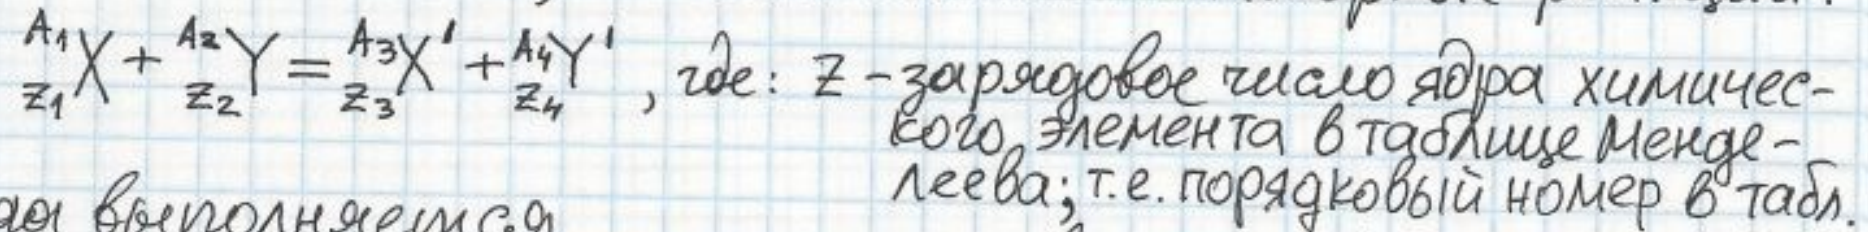 ^{A_1}_{Z_1}X + ^{A_2}_{Z_2}Y = ^{A_3}_{Z_3}X' + ^{A_4}_{Z_4}Y', где: Z - зарядовое число ядра химичес-
кого элемента в таблице Менде-
леева; т.е. порядковый номер в табл.
выполняется